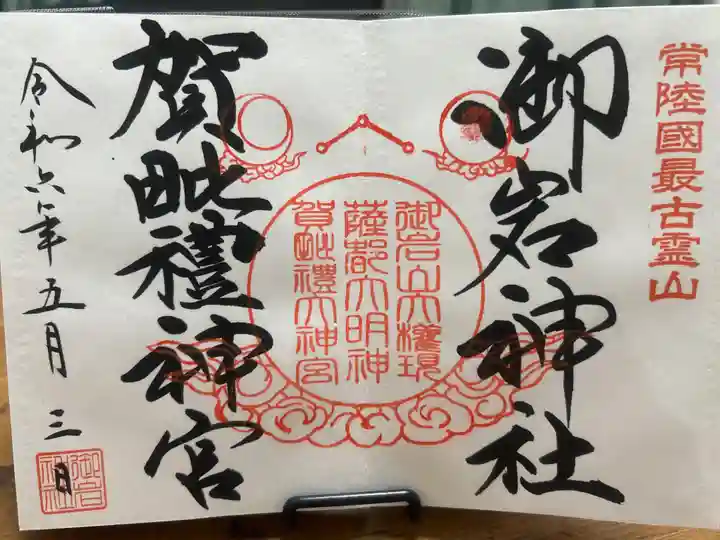 常陸國最古霊山
御岩神社
御岩山大権現
薩都大明神
賀毗禮大神宮
賀毗禮神宮
令和六年五月三日
御岩神社